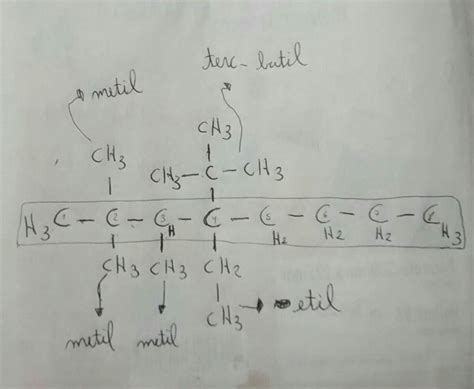 terc-butil
metil
CH3
CH3
CH3-C-CH3
H3C1-C2-C3H-C4-C5H2-C6H2-C7H2-C8H3
CH3 CH3 CH2
CH3 etil
metil metil